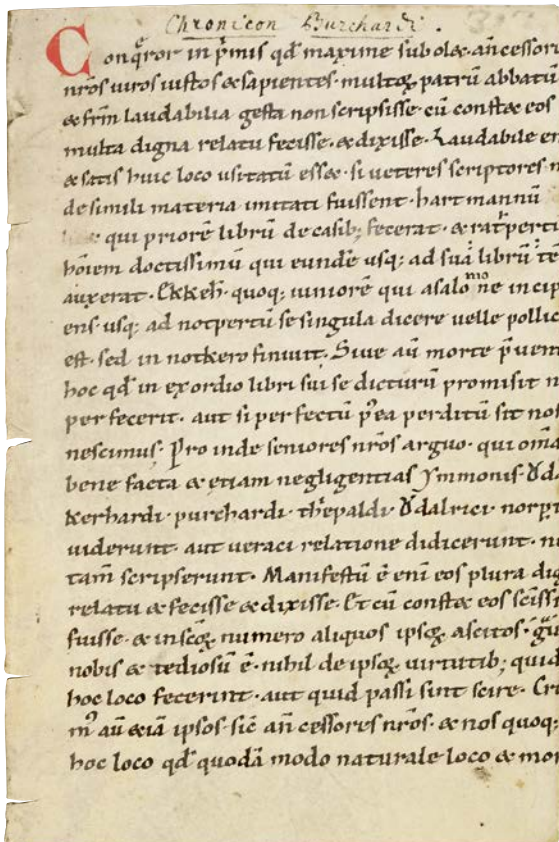 Chronicon Burchardi.
Conq̄ror in p̄mis qd̄ maxime sub olȩ. an̄cessori
nr̄os uiros iustos & sapientes. multoꝝ patrū abbatū
& fr̄m laudabilia gesta non scripsisse. cū constȩ eos
multa digna relatu fecisse. & dixisse. Laudabile en
& satis huic loco usitatū essȩ. si ueteres scriptores n
de simili materia imitati fuissent. hartmannū
qui priorē librū de casib; fecerat. & ratperti
hōiem doctissimū qui eundē usq; ad suā librū tē
auxerat. Ekkeh̄. quoq; iuniorē qui asalomone incip
ens usq; ad notpertū se singula dicere uelle pollic
est. sed in notkero finiuit. Siue aū morte p̄uen
hoc qd̄ in exordio libri sui se dicturū promisit n
perfecerit. aut si perfectū p̄ea perditū sit nos
nescimus. Proinde seniores nr̄os arguo. qui om̄a
bene facta & etiam negligentias ymmonis. Ǒda
kerhardi. purchardi. thepaldi. Ǒdalrici. norpti
uiderunt. aut ueraci relatione didicerunt. ne
tam̄ scripserunt. Manifestū ē enī eos plura dig
relatu & fecisse & dixisse. Et cū constȩ eos scīss
fuisse. & in sc̄oꝝ numero aliquos ipsoꝝ ascitos. gͣu
nobis & tediosū ē. nihil de ipsoꝝ uirtutib; quid
hoc loco fecerint. aut quid passi sint scire. Cre
m⁹ aū &iā ipsos sic̄ an̄cessores nr̄os. & nos quoq;
hoc loco qd̄ quodā modo naturale loco & mon